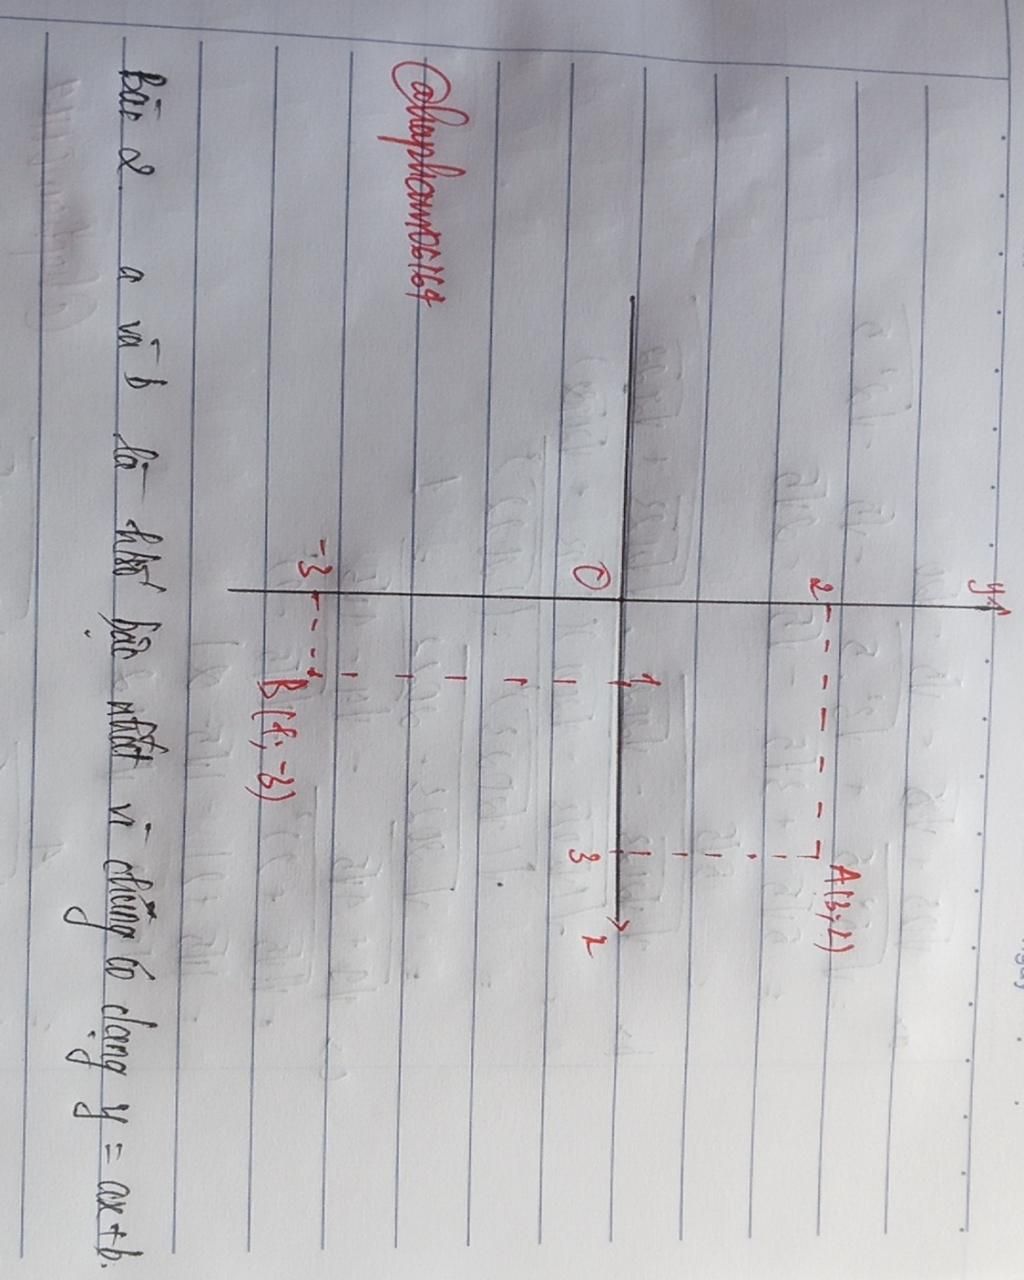 y
2
A(3;2)
O
1
3
x
-3
B(1;-3)
@haphamob164
Bài 2. a và b là hàm số bậc nhất vì chúng có dạng y = ax + b.